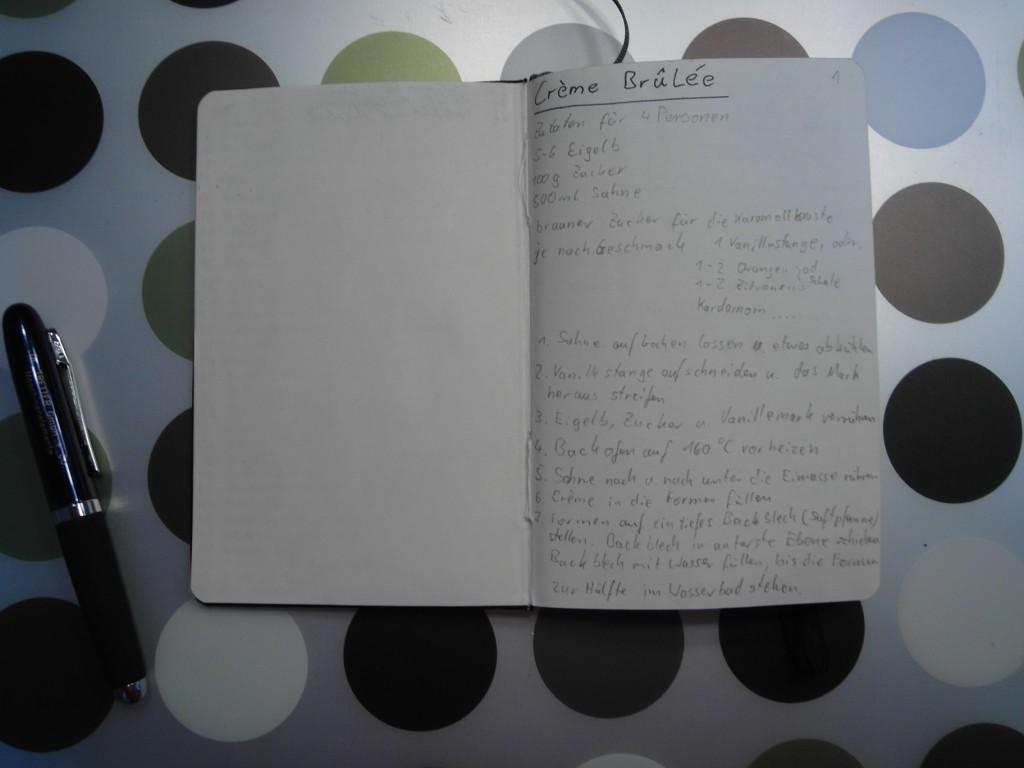 Crème Brûlée
1
Zutaten für 4 Personen
5-6 Eigelb
100g Zucker
500ml Sahne
brauner Zucker für die Karamellkruste
je nach Geschmack 1 Vanillestange, oder
1-2 Orangen od.
1-2 Zitronen Schale
Kardamom ....
1. Sahne aufkochen lassen u. etwas abkühlen
2. Vanillestange aufschneiden u. das Mark
heraus streifen
3. Eigelb, Zucker u. Vanillemark verrühren
4. Backofen auf 160 °C vorheizen
5. Sahne nach u. nach unter die Eimasse rühren
6. Crème in die Formen füllen
7. Formen auf ein tiefes Backblech (Saftpfanne)
stellen. Backblech in unterste Ebene schieben
Backblech mit Wasser füllen, bis die Formen
zur Hälfte im Wasserbad stehen.